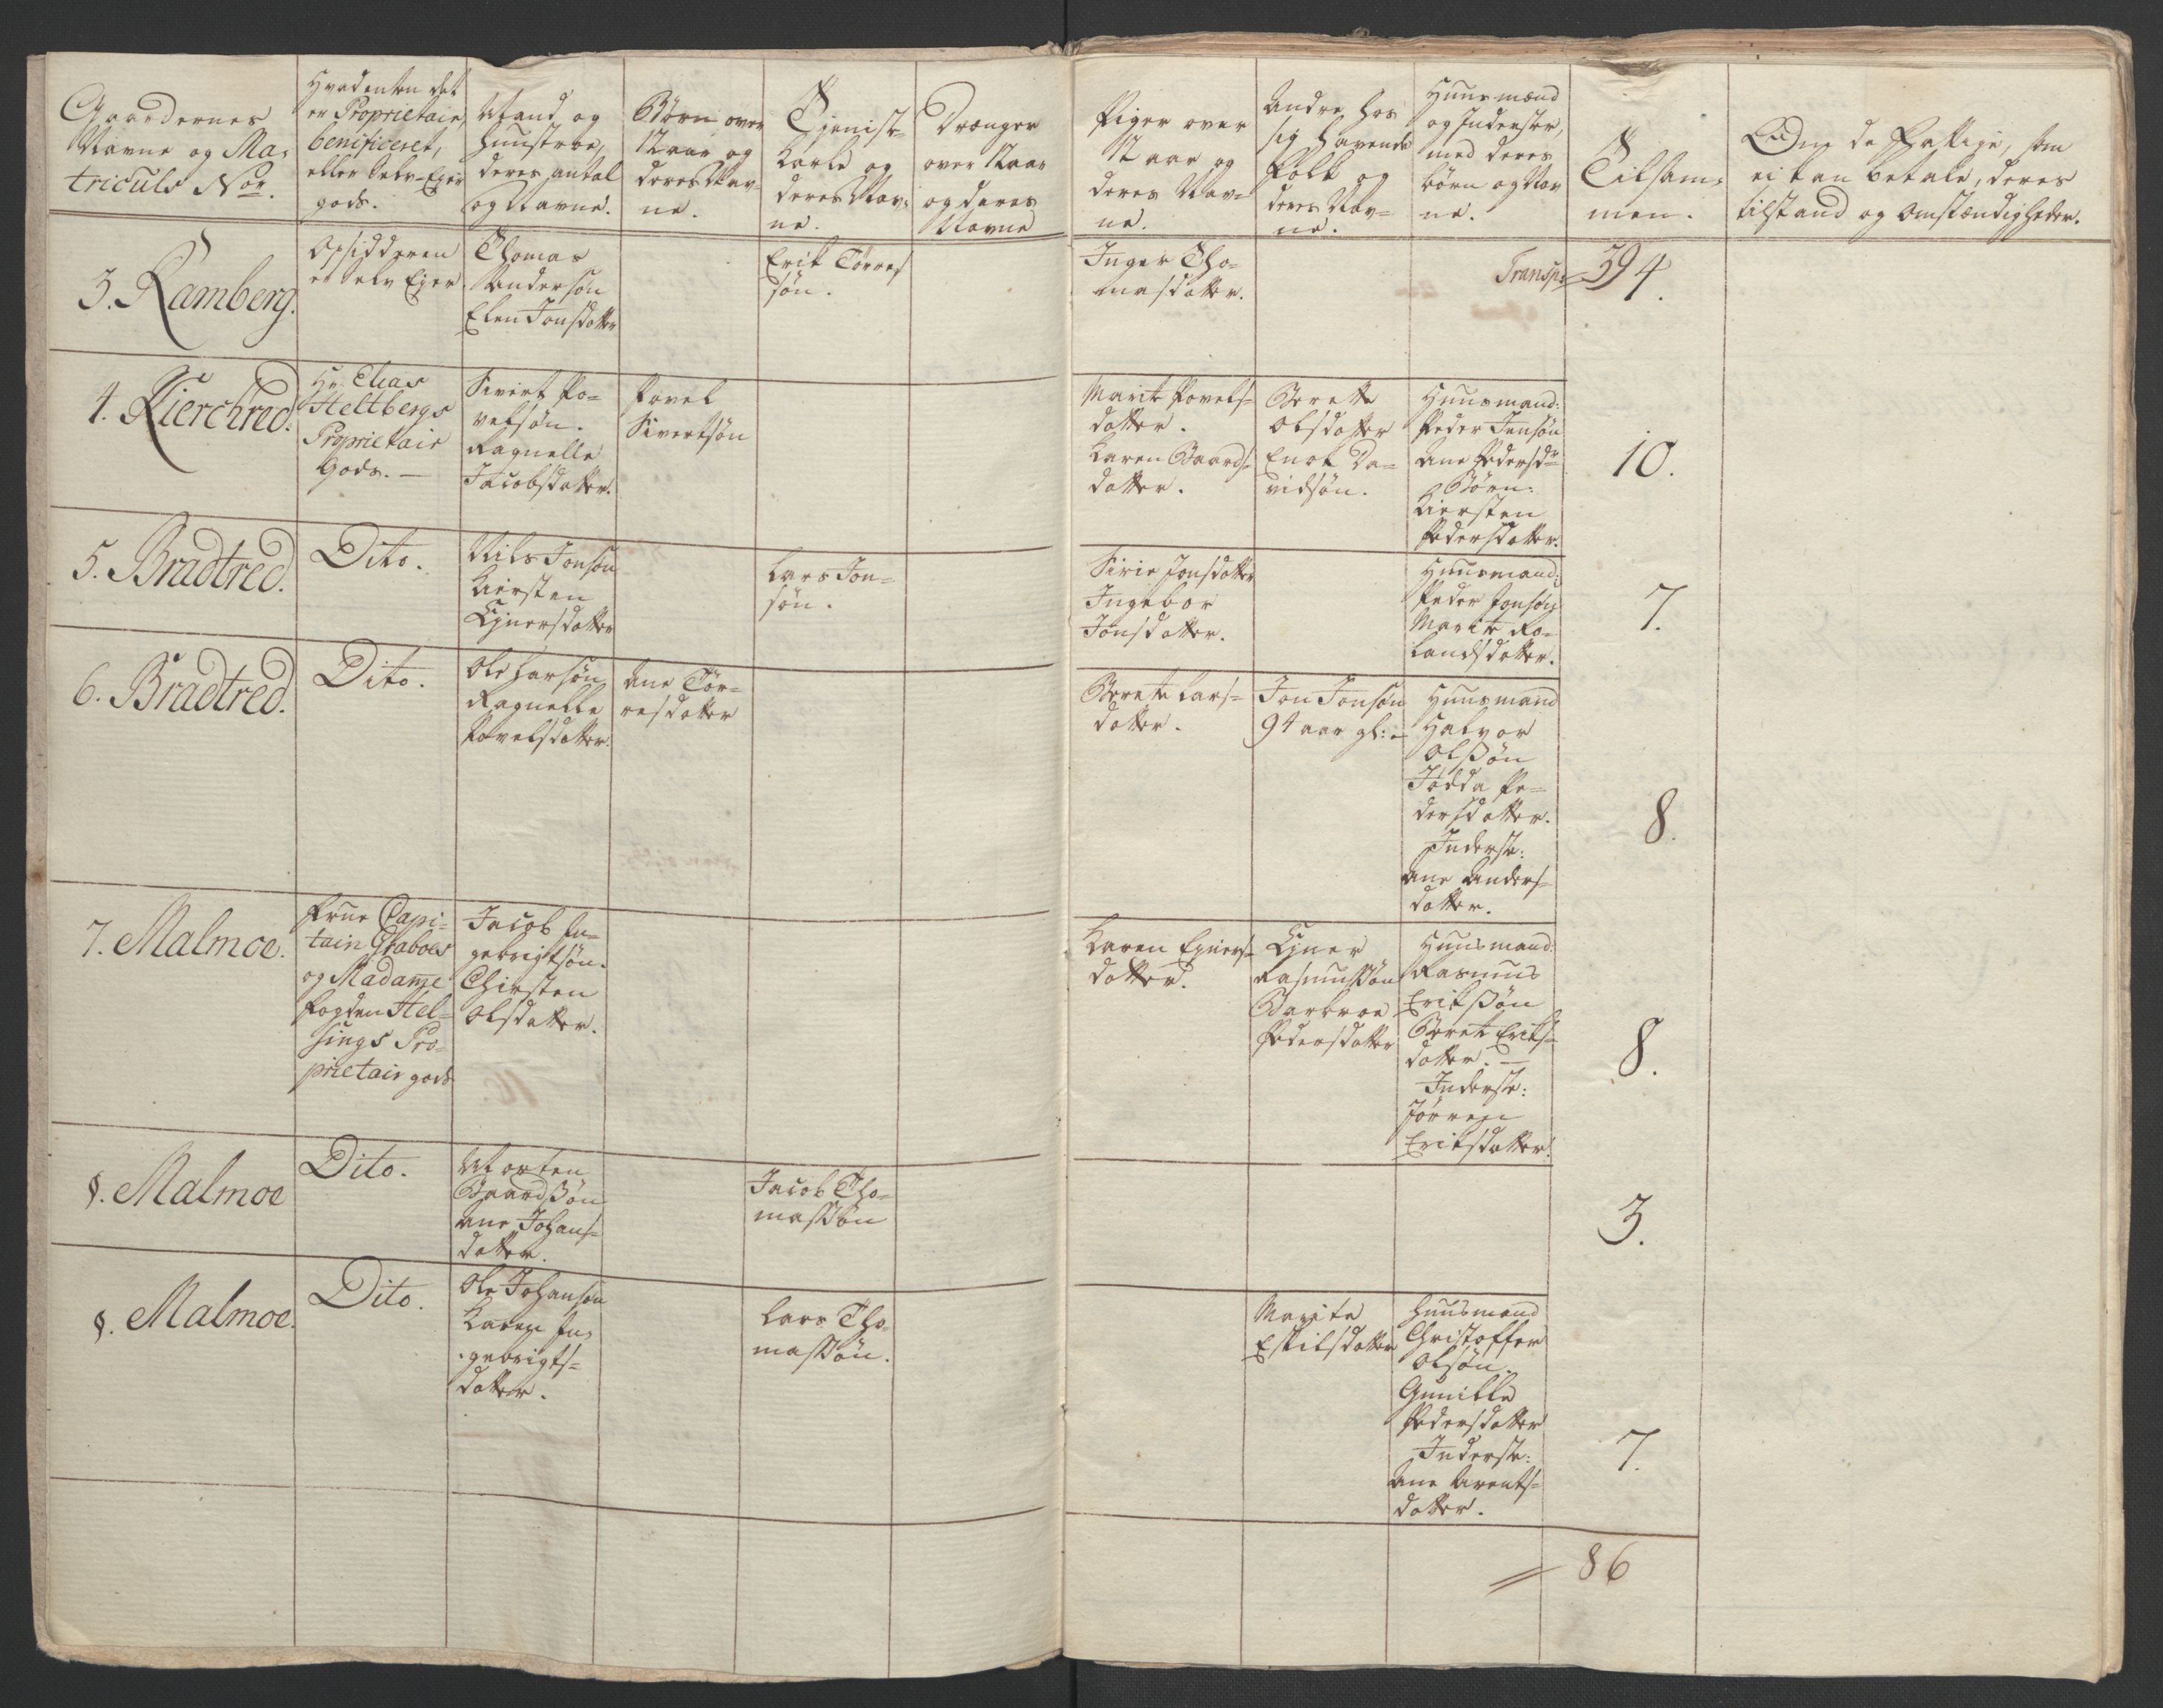 Gaardernes
Navne og Ma,
triculs No.
Hvadenten det
er Proprietair,
benificeret,
eller Selv-Eyer
gods.
Mand og
Huustroe,
deres antal
og Navne.
Børn over
12 aar og
deres Nav-
ne.
Tieniste
Karle og
deres Nav,
ne.
Drænger
over 12 aar
og deres
Navne
Piger over
12 aar og
deres Nav-
ne.
Andre hos
sig havende
Folk og
deres Nav-
ne.
Huusmænd
og Inderster,
med deres
børn og Nav
ne.
Tilsam,
men.
Om de Fattige, som
ei kan betale, deres
tilstand og omstændigheder.
3. Ramberg.
Opsidderen
er Selv Eyer
Thomas
Andersøn
Elen Jonsdatter
Erik Torres
søn.
Inger Tho-
masdatter.
Transp:
39
4.
4. Kierchred.
Hr. Elias
Heltbergs
Proprietair
Gods. —
Sivert Po-
velsøn.
Ragnelle
Jacobsdatter.
Povel
Sivertsøn
Marit Povels-
datter.
Karen Baards-
datter.
Berette
Olsdatter
Enok Da-
vidsøn.
Huusmand:
Peder Jensøn
Ane Pedersdr
Børn:
Kiersten
Pedersdatter.
10.
5. Bradtred.
Dito.
Nils Jonsøn
Kiersten
Ejnersdatter
Lars Jon-
søn.
Sirie Jonsdatter
Ingebor
Jonsdatter.
Huusmand:
Peder Jonsøn
Marit Ro-
landsdatter.
7.
6. Bradtred.
Dito.
Ole Larsøn
Ragnelle
Povelsdatter.
Ane Tør-
resdatter
Berete Lars-
datter.
Jon Jonsøn
94 aar gl: -
Huusmand
Halvor
Olsøn
Jødda Pe-
dersdatter.
Inderste:
Ane Anders-
datter.
8.
7. Malmoe.
Frue Capi-
tain Graboes
og Madame
Fogden Hel-
sings Pro-
prietair gods
Jacob In-
gebrigtsøn.
Chirsten
Olsdatter.
Karen Ejners-
datter.
Ejner
Rasmussøn
Barbroe
Pedersdatter
Huusmand:
Rasmus
Eriksøn
Beret Eriks-
datter. —
Inderste:
Jørren
Eriksdatter.
8.
8. Malmoe
Dito.
Morten
Baardsøn
Ane Johans-
datter.
Jacob Tho-
massøn
3.
8. Malmoe.
Dito.
Ole Johansøn
Karen In,
gebrigts-
datter.
Lars Tho-
massøn.
Marite
Eskilsdatter
Huusmand
Christoffer
Olsøn.
Gunille
Pedersdatter
Inderste:
Ane Arents-
datter.
7.
86